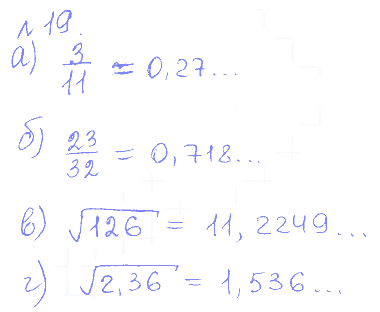 № 19.
а) 3/11 = 0,27...
б) 23/32 = 0,718...
в) √126 = 11,2249...
г) √2,36 = 1,536...